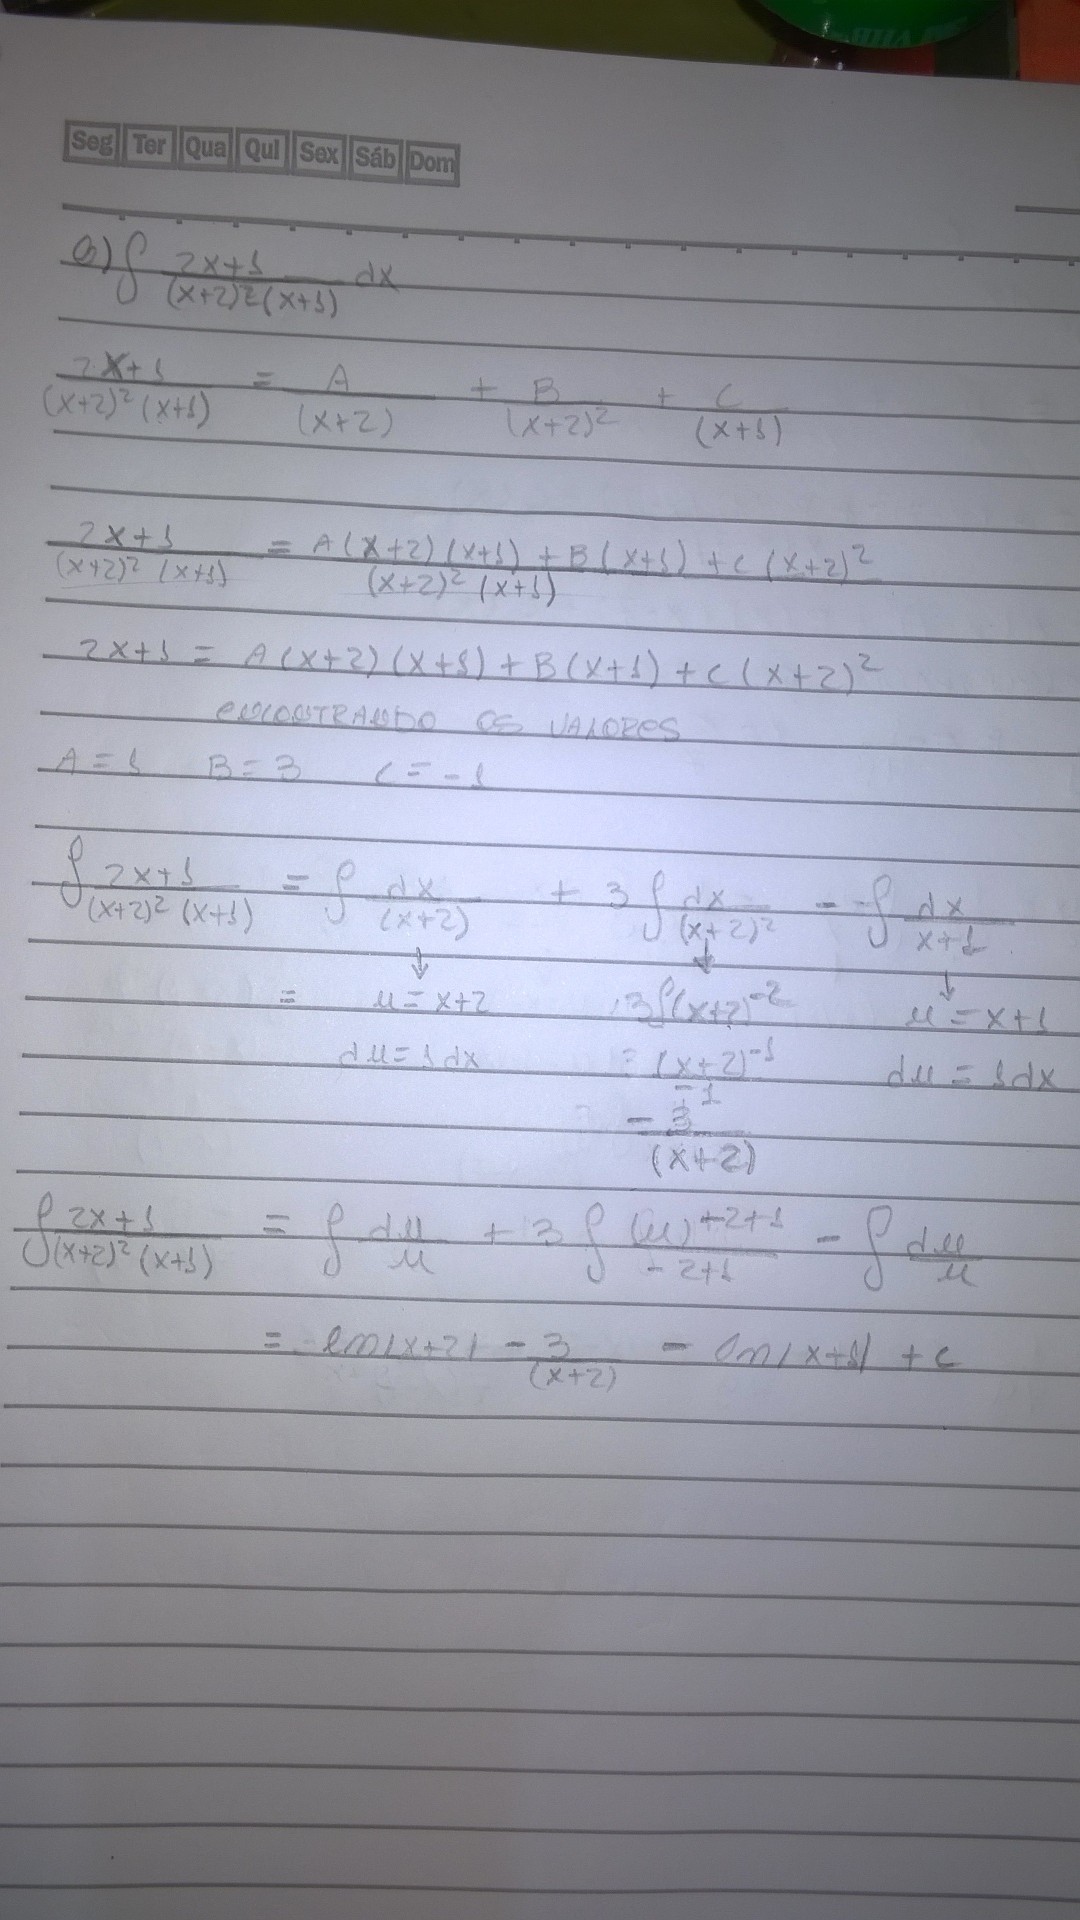 Seg Ter Qua Qui Sex Sáb Dom
a) ∫ 2x+1 / (x+2)²(x+1) dx
2x+1 / (x+2)² (x+1) = A / (x+2) + B / (x+2)² + C / (x+1)
2x+1 / (x+2)² (x+1) = A(x+2)(x+1) + B(x+1) + C(x+2)² / (x+2)² (x+1)
2x+1 = A(x+2)(x+1) + B(x+1) + C(x+2)²
ENCONTRANDO OS VALORES
A = 1 B = 3 C = -1
∫ 2x+1 / (x+2)² (x+1) = ∫ dx / (x+2) + 3∫ dx / (x+2)² - ∫ dx / x+1
↓ ↓ ↓
= u = x+2 3∫(x+2)⁻² u = x+1
du = 1dx = (x+2)⁻¹ / -1 du = 1dx
- 3 / (x+2)
∫ 2x+1 / (x+2)² (x+1) = ∫ du / u + 3∫ (u)⁺²⁺¹ / -2+1 - ∫ du / u
= ln|x+2| - 3 / (x+2) - ln|x+1| + c